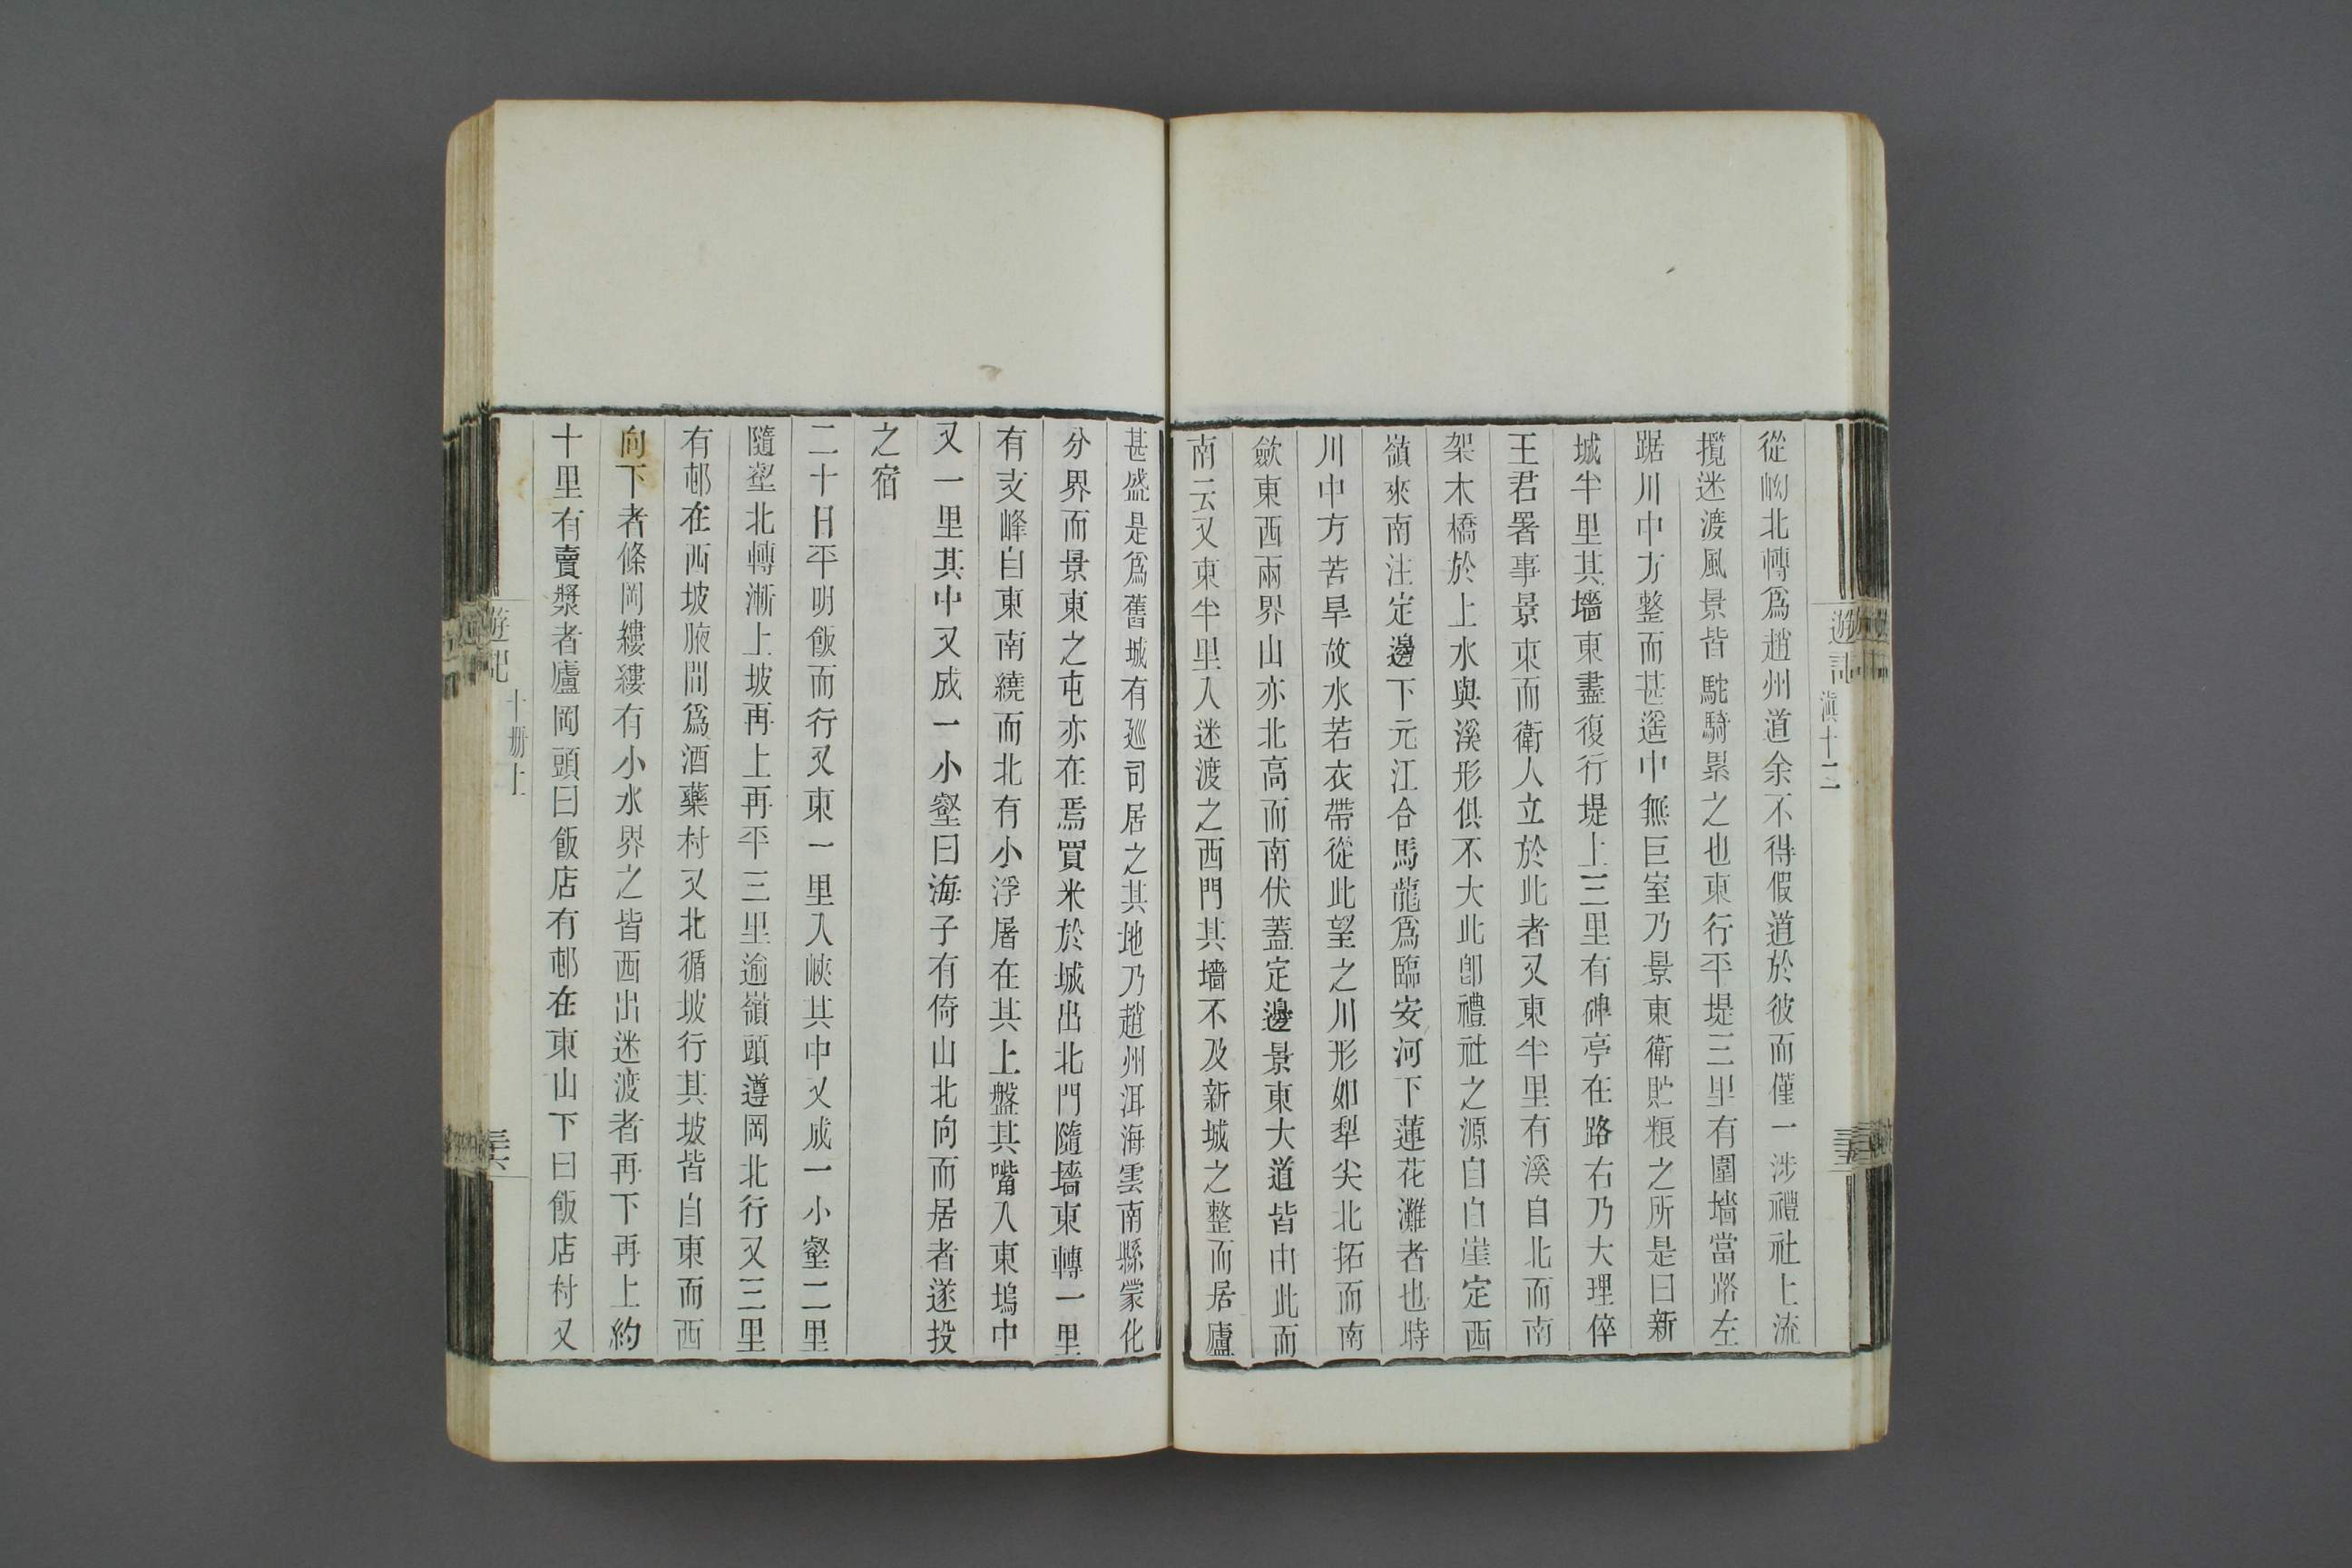 遊記 滇十二
從峋北轉爲趙州道余不得假道於彼而僅一涉禮社上流
攬迷渡風景皆駝騎累之也東行平堤三里有圍墻當路左
踞川中方整而甚遥中無巨室乃景東衛貯粮之所是曰新
城半里其墻東盡復行堤上三里有碑亭在路右乃大理倅
王君署事景東而衛人立於此者又東半里有溪自北而南
架木橋於上水與溪形俱不大此卽禮社之源自白崖定西
嶺來南注定邊下元江合馬龍爲臨安河下蓮花灘者也時
川中方苦旱故水若衣帶從此望之川形如犁尖北拓而南
歛東西兩界山亦北高而南伏蓋定邊景東大道皆由此而
南云又東半里入迷渡之西門其墻不及新城之整而居廬
甚盛是爲舊城有廵司居之其地乃趙州洱海雲南縣蒙化
分界而景東之屯亦在焉買米於城出北門隨墻東轉一里
有支峰自東南繞而北有小浮屠在其上盤其嘴入東塢中
又一里其中又成一小壑曰海子有倚山北向而居者遂投
之宿
二十日平明飯而行又東一里入峽其中又成一小壑二里
隨壑北轉漸上坡再上再平三里逾嶺頭遵岡北行又三里
有邨在西坡腋間爲酒藥村又北循坡行其坡皆自東而西
向下者條岡縷縷有小水界之皆西出迷渡者再下再上約
十里有賣漿者廬岡頭曰飯店有邨在東山下曰飯店村又
遊記 十册上